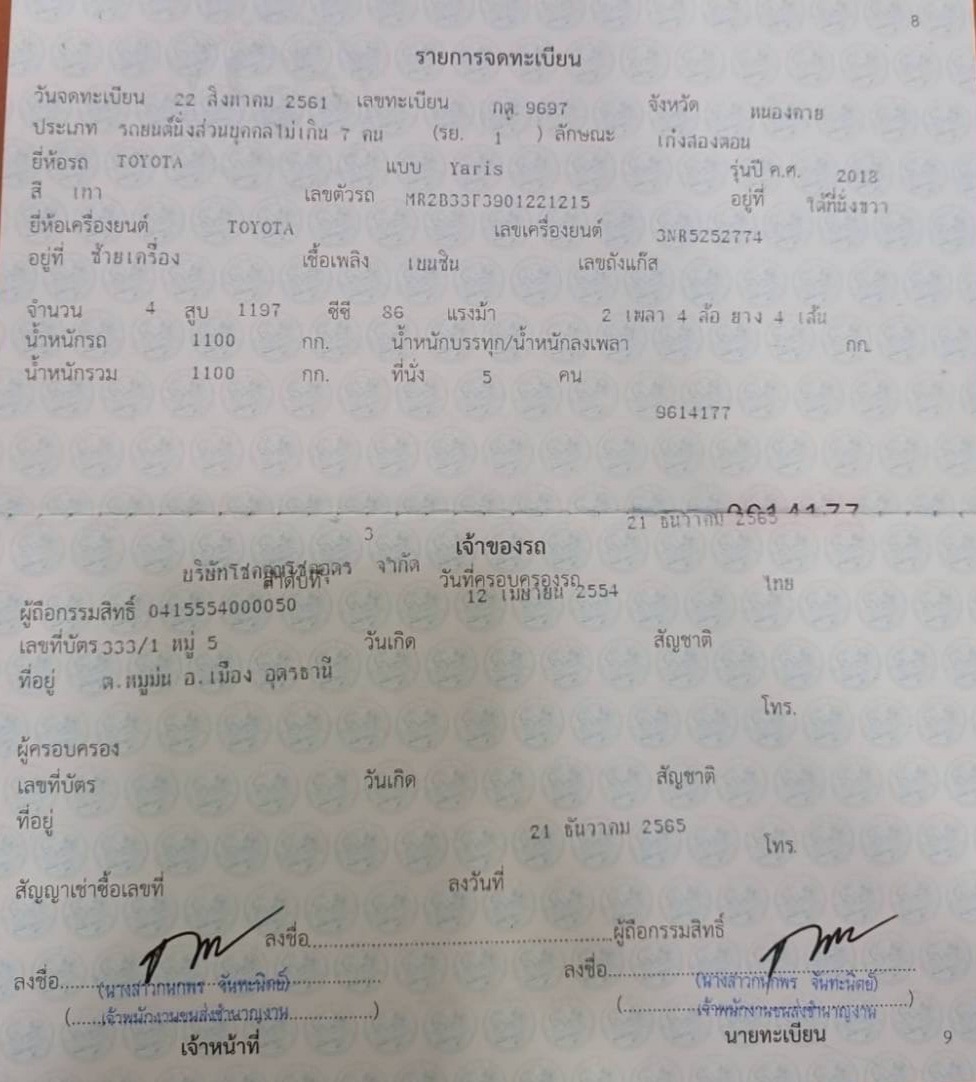 8
รายการจดทะเบียน
วันจดทะเบียน 22 สิงหาคม 2561 เลขทะเบียน กตู 9697 จังหวัด หนองคาย
ประเภท รถยนต์นั่งส่วนบุคคลไม่เกิน 7 คน (รย. 1 ) ลักษณะ เก๋งสองตอน
ยี่ห้อรถ TOYOTA แบบ Yaris รุ่นปี ค.ศ. 2018
สี เทา เลขตัวรถ MR2B33F3901221215 อยู่ที่ ใต้ที่นั่งขวา
ยี่ห้อเครื่องยนต์ TOYOTA เลขเครื่องยนต์ 3NR5252774
อยู่ที่ ซ้ายเครื่อง เชื้อเพลิง เบนซิน เลขถังแก๊ส
จำนวน 4 สูบ 1197 ซีซี 86 แรงม้า 2 เพลา 4 ล้อ ยาง 4 เส้น
น้ำหนักรถ 1100 กก. น้ำหนักบรรทุก/น้ำหนักลงเพลา กก.
น้ำหนักรวม 1100 กก. ที่นั่ง 5 คน
9614177
9614177
21 ธันวาคม 2565
3 เจ้าของรถ
บริษัทโชคคูณโชคอุดร จำกัด
ลำดับที่ วันที่ครอบครองรถ ไทย
ผู้ถือกรรมสิทธิ์ 0415554000050 12 เมษายน 2554
เลขที่บัตร 333/1 หมู่ 5 วันเกิด สัญชาติ
ที่อยู่ ต.หมูม่น อ.เมือง อุดรธานี
โทร.
ผู้ครอบครอง
เลขที่บัตร วันเกิด สัญชาติ
ที่อยู่ 21 ธันวาคม 2565
โทร.
สัญญาเช่าซื้อเลขที่ ลงวันที่
ลงชื่อ..........ผู้ถือกรรมสิทธิ์
ลงชื่อ.......... ลงชื่อ..........
(นางสาวกนกพร จันทะนิตย์) (นางสาวกนกพร จันทะนิตย์)
(.....เจ้าพนักงานขนส่งชำนาญงาน.....) (.....เจ้าพนักงานขนส่งชำนาญงาน.....)
เจ้าหน้าที่ นายทะเบียน
9